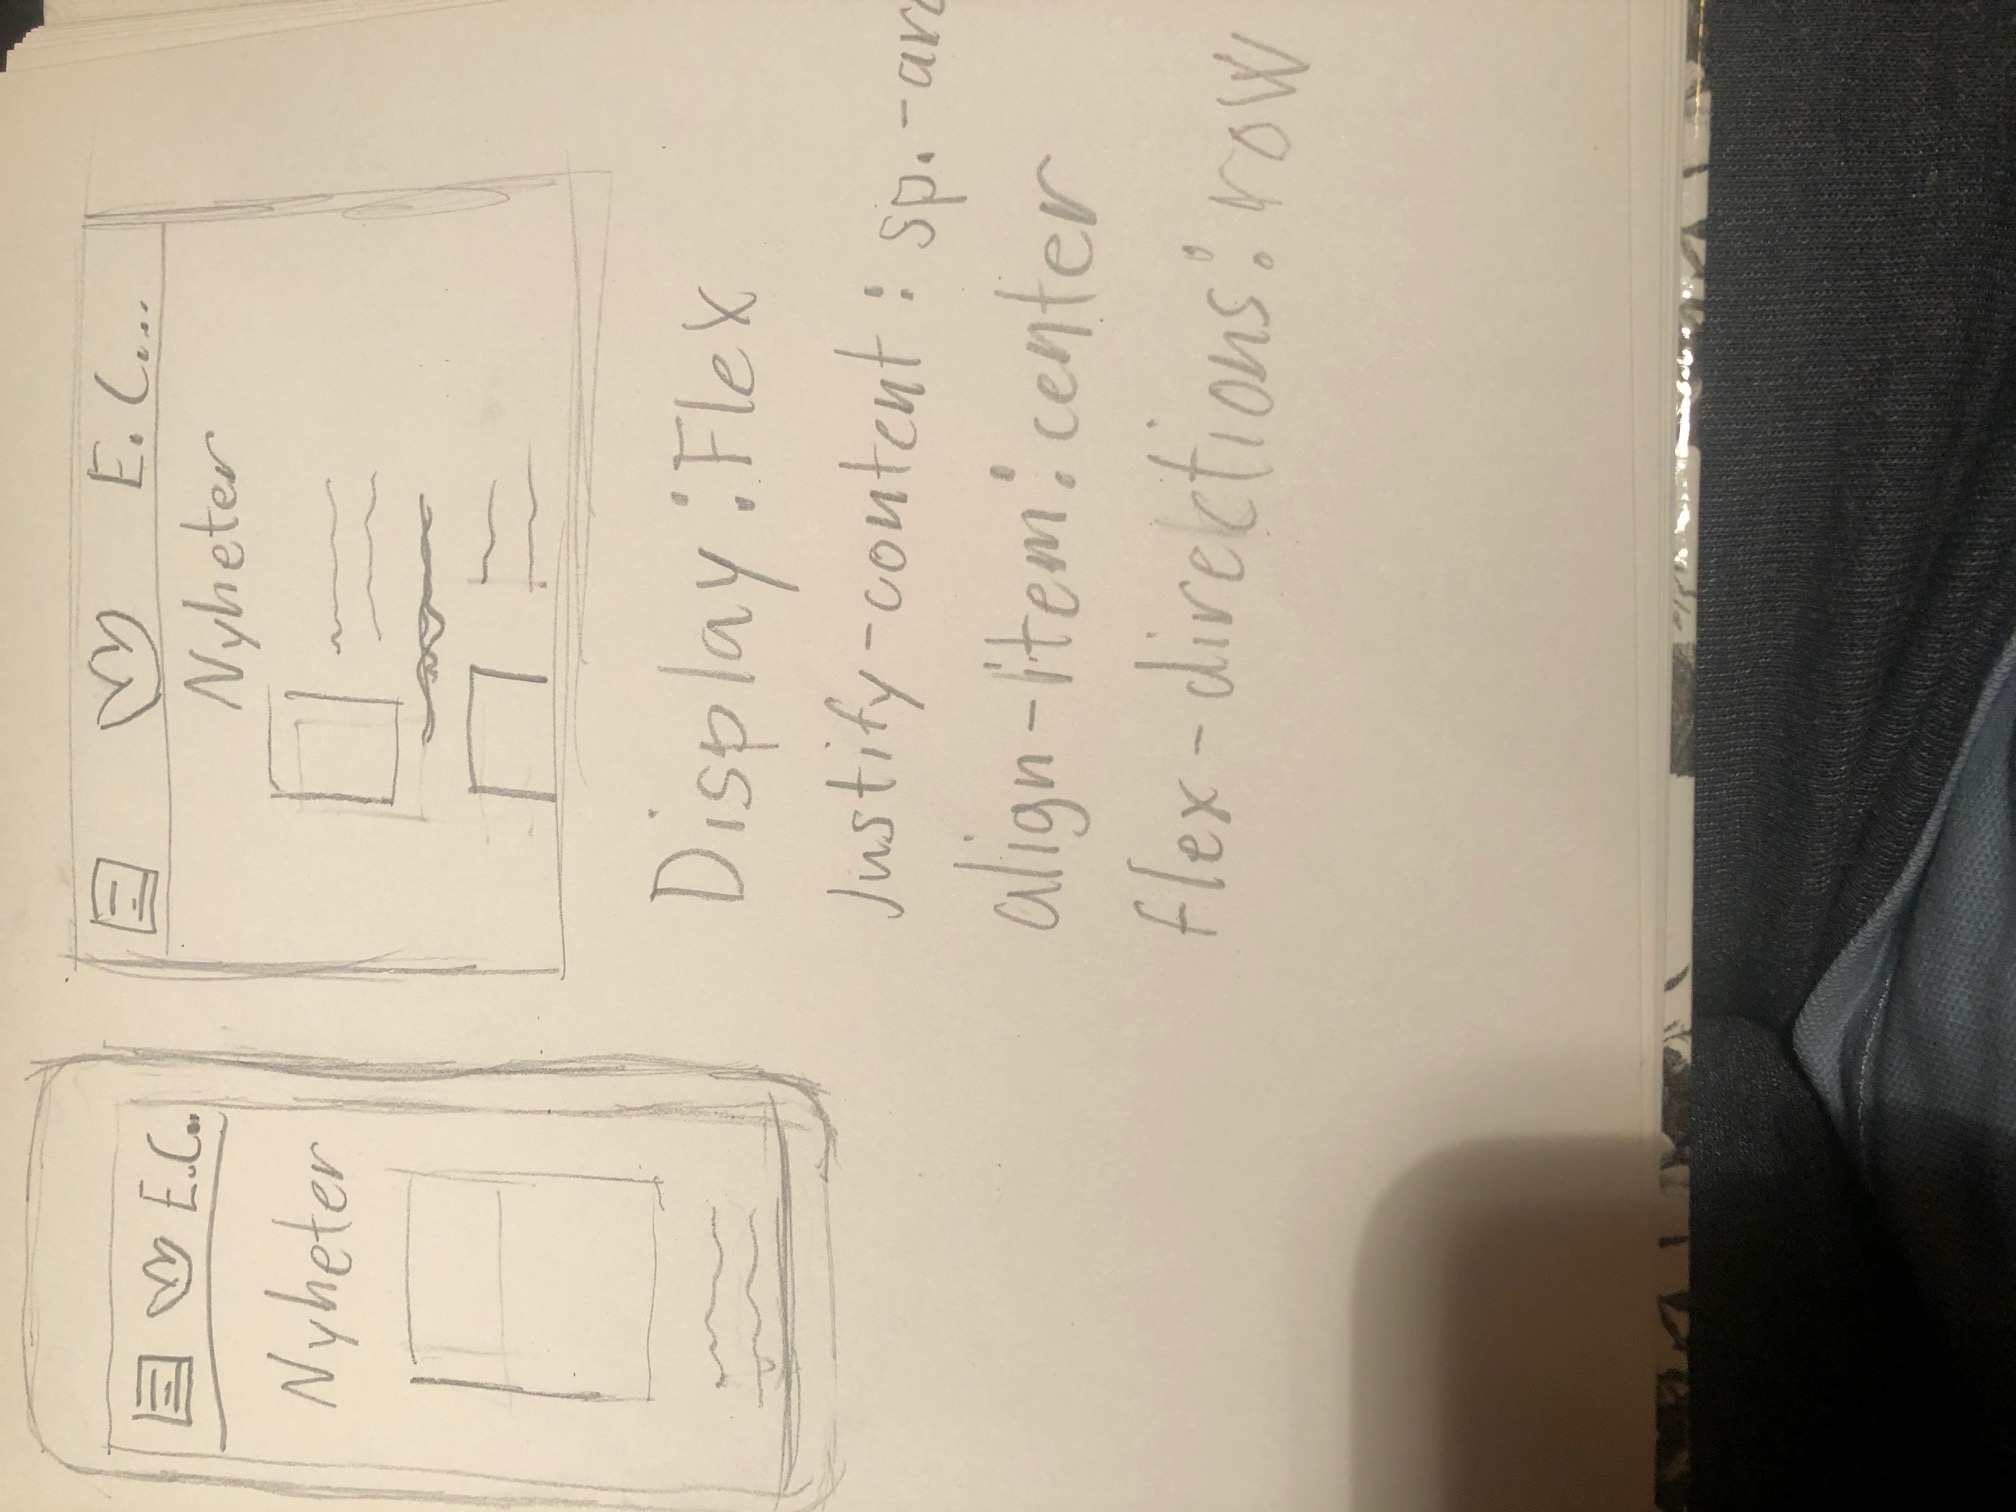 E.C...
Nyheter
E. C...
Nyheter
Display: Flex
Justify-content: sp.-aro
align-item: center
flex-direktions: row